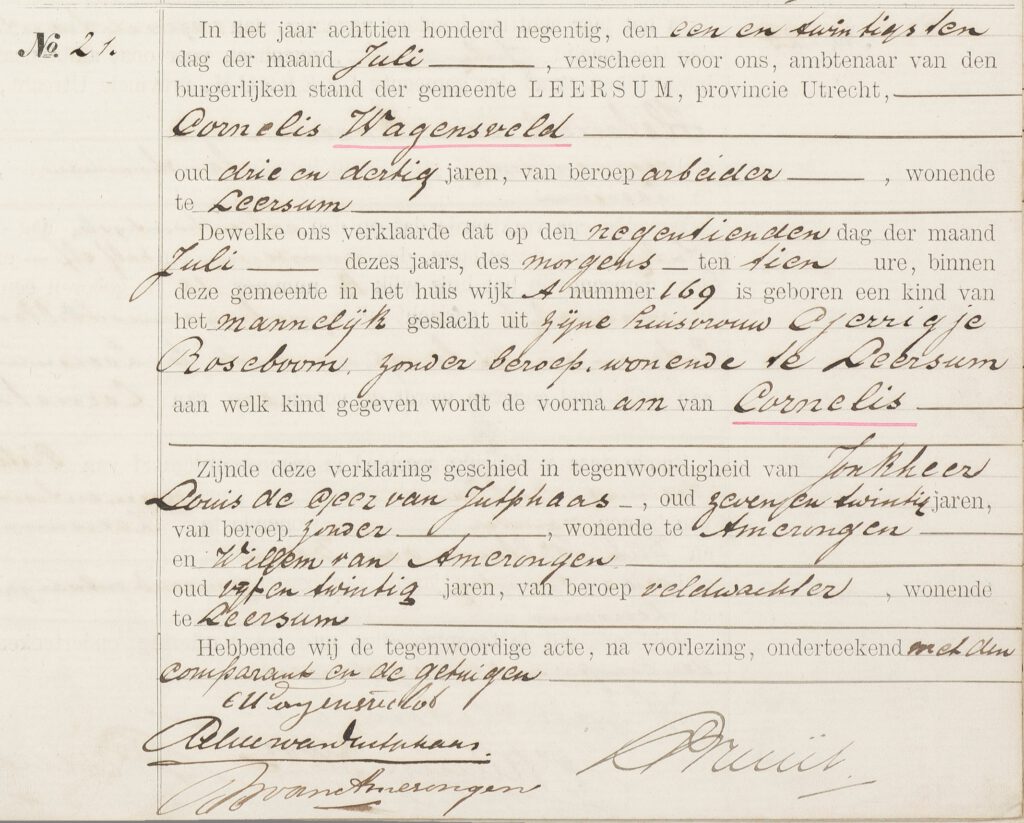 No. 21.
In het jaar achttien honderd negentig, den een en twintigsten
dag der maand Juli, verscheen voor ons, ambtenaar van den
burgerlijken stand der gemeente LEERSUM, provincie Utrecht,
Cornelis Wagensveld
oud drie en dertig jaren, van beroep arbeider, wonende
te Leersum
Dewelke ons verklaarde dat op den negentienden dag der maand
Juli dezes jaars, des morgens ten tien ure, binnen
deze gemeente in het huis wijk A nummer 169 is geboren een kind van
het mannelijk geslacht uit zijne huisvrouw Gerrigje
Roseboom, zonder beroep, wonende te Leersum
aan welk kind gegeven wordt de voornaam van Cornelis
Zijnde deze verklaring geschied in tegenwoordigheid van Jonkheer
Louis de Geer van Jutphaas, oud zeven en twintig jaren,
van beroep zonder, wonende te Amerongen
en Willem van Amerongen
oud vijf en twintig jaren, van beroep veldwachter, wonende
te Leersum
Hebbende wij de tegenwoordige acte, na voorlezing, onderteekend met den
comparant en de getuigen
C Wagensveld
van Jutphaas.
van Amerongen